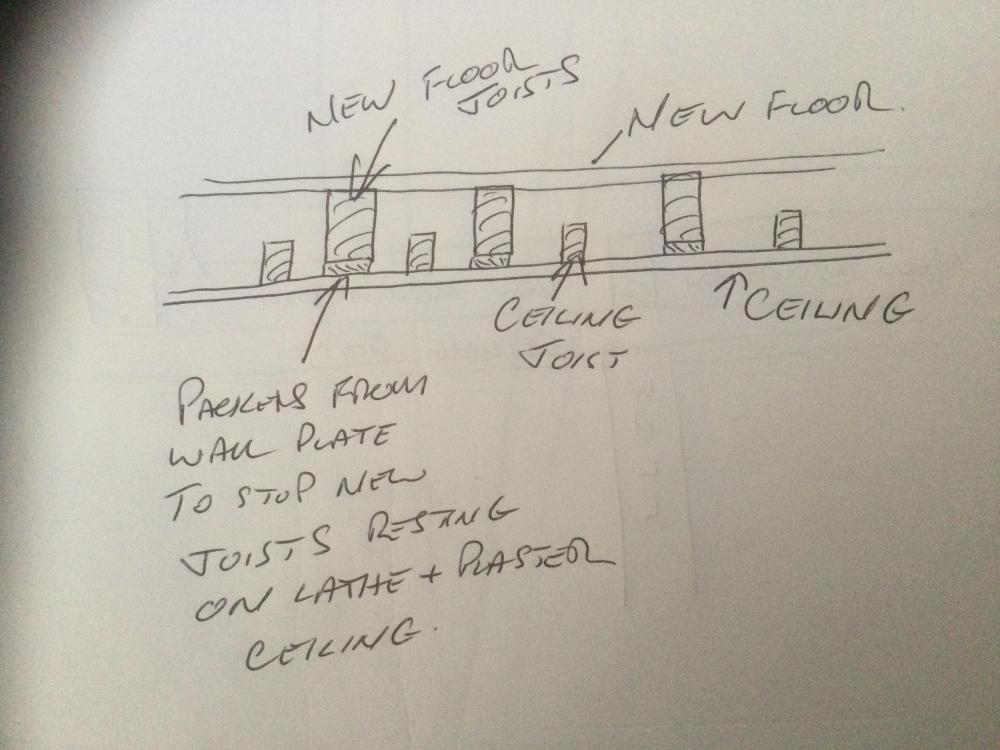 NEW FLOOR
JOISTS
NEW FLOOR.
CEILING
JOIST
CEILING
PACKERS FROM
WALL PLATE
TO STOP NEW
JOISTS RESTING
ON LATHE + PLASTER
CEILING.